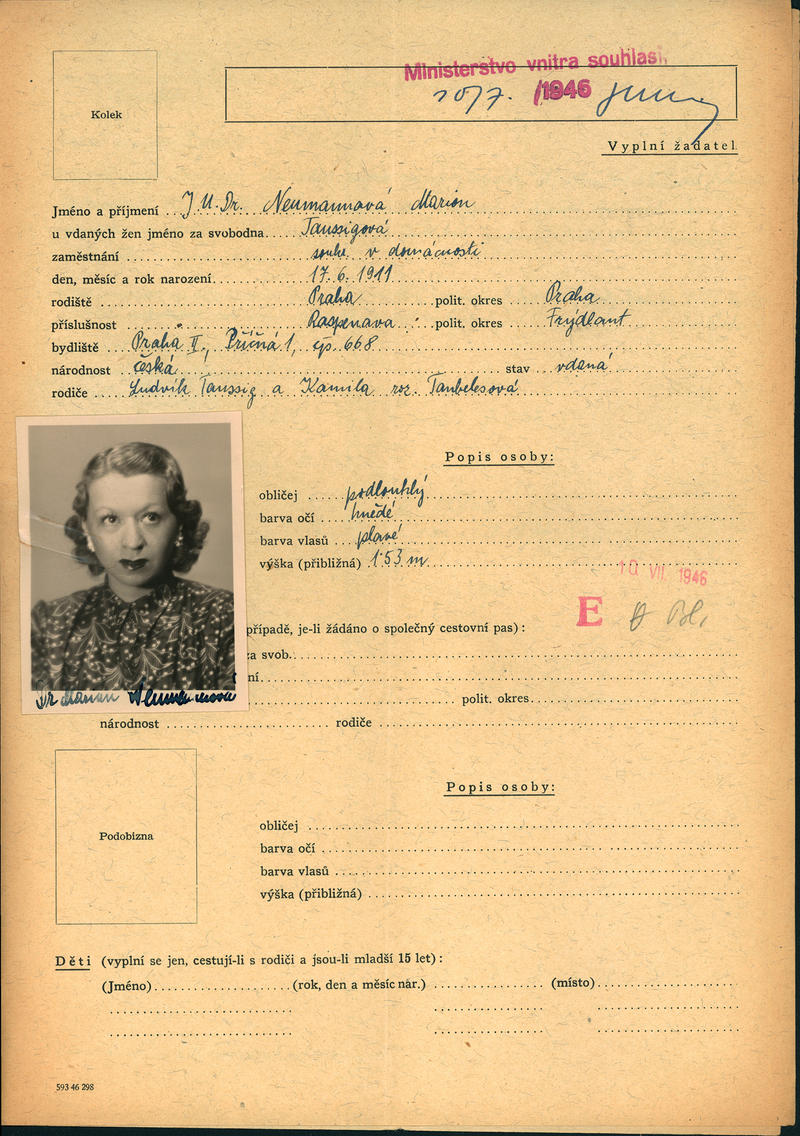 Kolek
Ministerstvo vnitra souhlasí
10/7. 1946
Vyplní žadatel
Jméno a příjmení J.U.Dr. Neumannová Marion
u vdaných žen jméno za svobodna Taussigová
zaměstnání soukr. v domácnosti
den, měsíc a rok narození 17.6.1911
rodiště Praha polit. okres Praha
příslušnost Raspenava polit. okres Frýdlant
bydliště Praha II., Příčná 1, čp. 668
národnost česká stav vdaná
rodiče Ludvík Taussig a Kamila roz. Taubelesová
Popis osoby:
obličej podlouhlý
barva očí hnědé
barva vlasů plavé
výška (přibližná) 1.53 m
10 VII. 1946
E
případě, je-li žádáno o společný cestovní pas):
za svob.
ní
polit. okres
Dr Marion Neumannová
národnost rodiče
Popis osoby:
Podobizna
obličej
barva očí
barva vlasů
výška (přibližná)
Děti (vyplní se jen, cestují-li s rodiči a jsou-li mladší 15 let):
(Jméno) (rok, den a měsíc nar.) (místo)
593 46 298